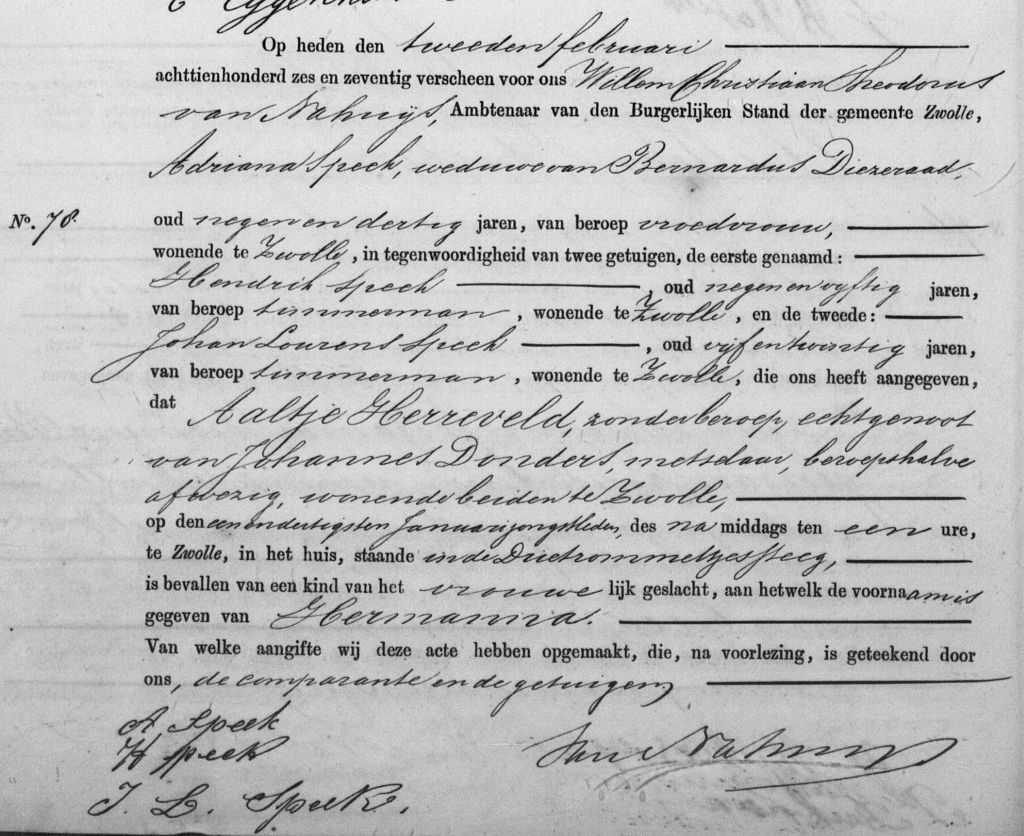 Op heden den tweeden februari
achttienhonderd zes en zeventig verscheen voor ons Willem Christiaan Theodorus
van Nahuijs, Ambtenaar van den Burgerlijken Stand der gemeente Zwolle,
Adriana Speek, weduwe van Bernardus Diezeraad,
No. 78. oud negen en dertig jaren, van beroep vroedvrouw,
wonende te Zwolle, in tegenwoordigheid van twee getuigen, de eerste genaamd:
Hendrik Speek, oud negen en vijftig jaren,
van beroep timmerman, wonende te Zwolle, en de tweede:
Johan Lourens Speek, oud vijf en twintig jaren,
van beroep timmerman, wonende te Zwolle, die ons heeft aangegeven,
dat Aaltje Herreveld, zonder beroep, echtgenoot
van Johannes Donders, metselaar, beroepshalve
afwezig, wonende beiden te Zwolle,
op den een en dertigsten Januari jongstleden, des na middags ten een ure,
te Zwolle, in het huis, staande in de Drietrommeltjessteeg,
is bevallen van een kind van het vrouwe lijk geslacht, aan hetwelk de voornaam is
gegeven van Hermanna.
Van welke aangifte wij deze acte hebben opgemaakt, die, na voorlezing, is geteekend door
ons, de comparante en de getuigen
A Speek
H Speek
J. L. Speek.
van Nahuijs